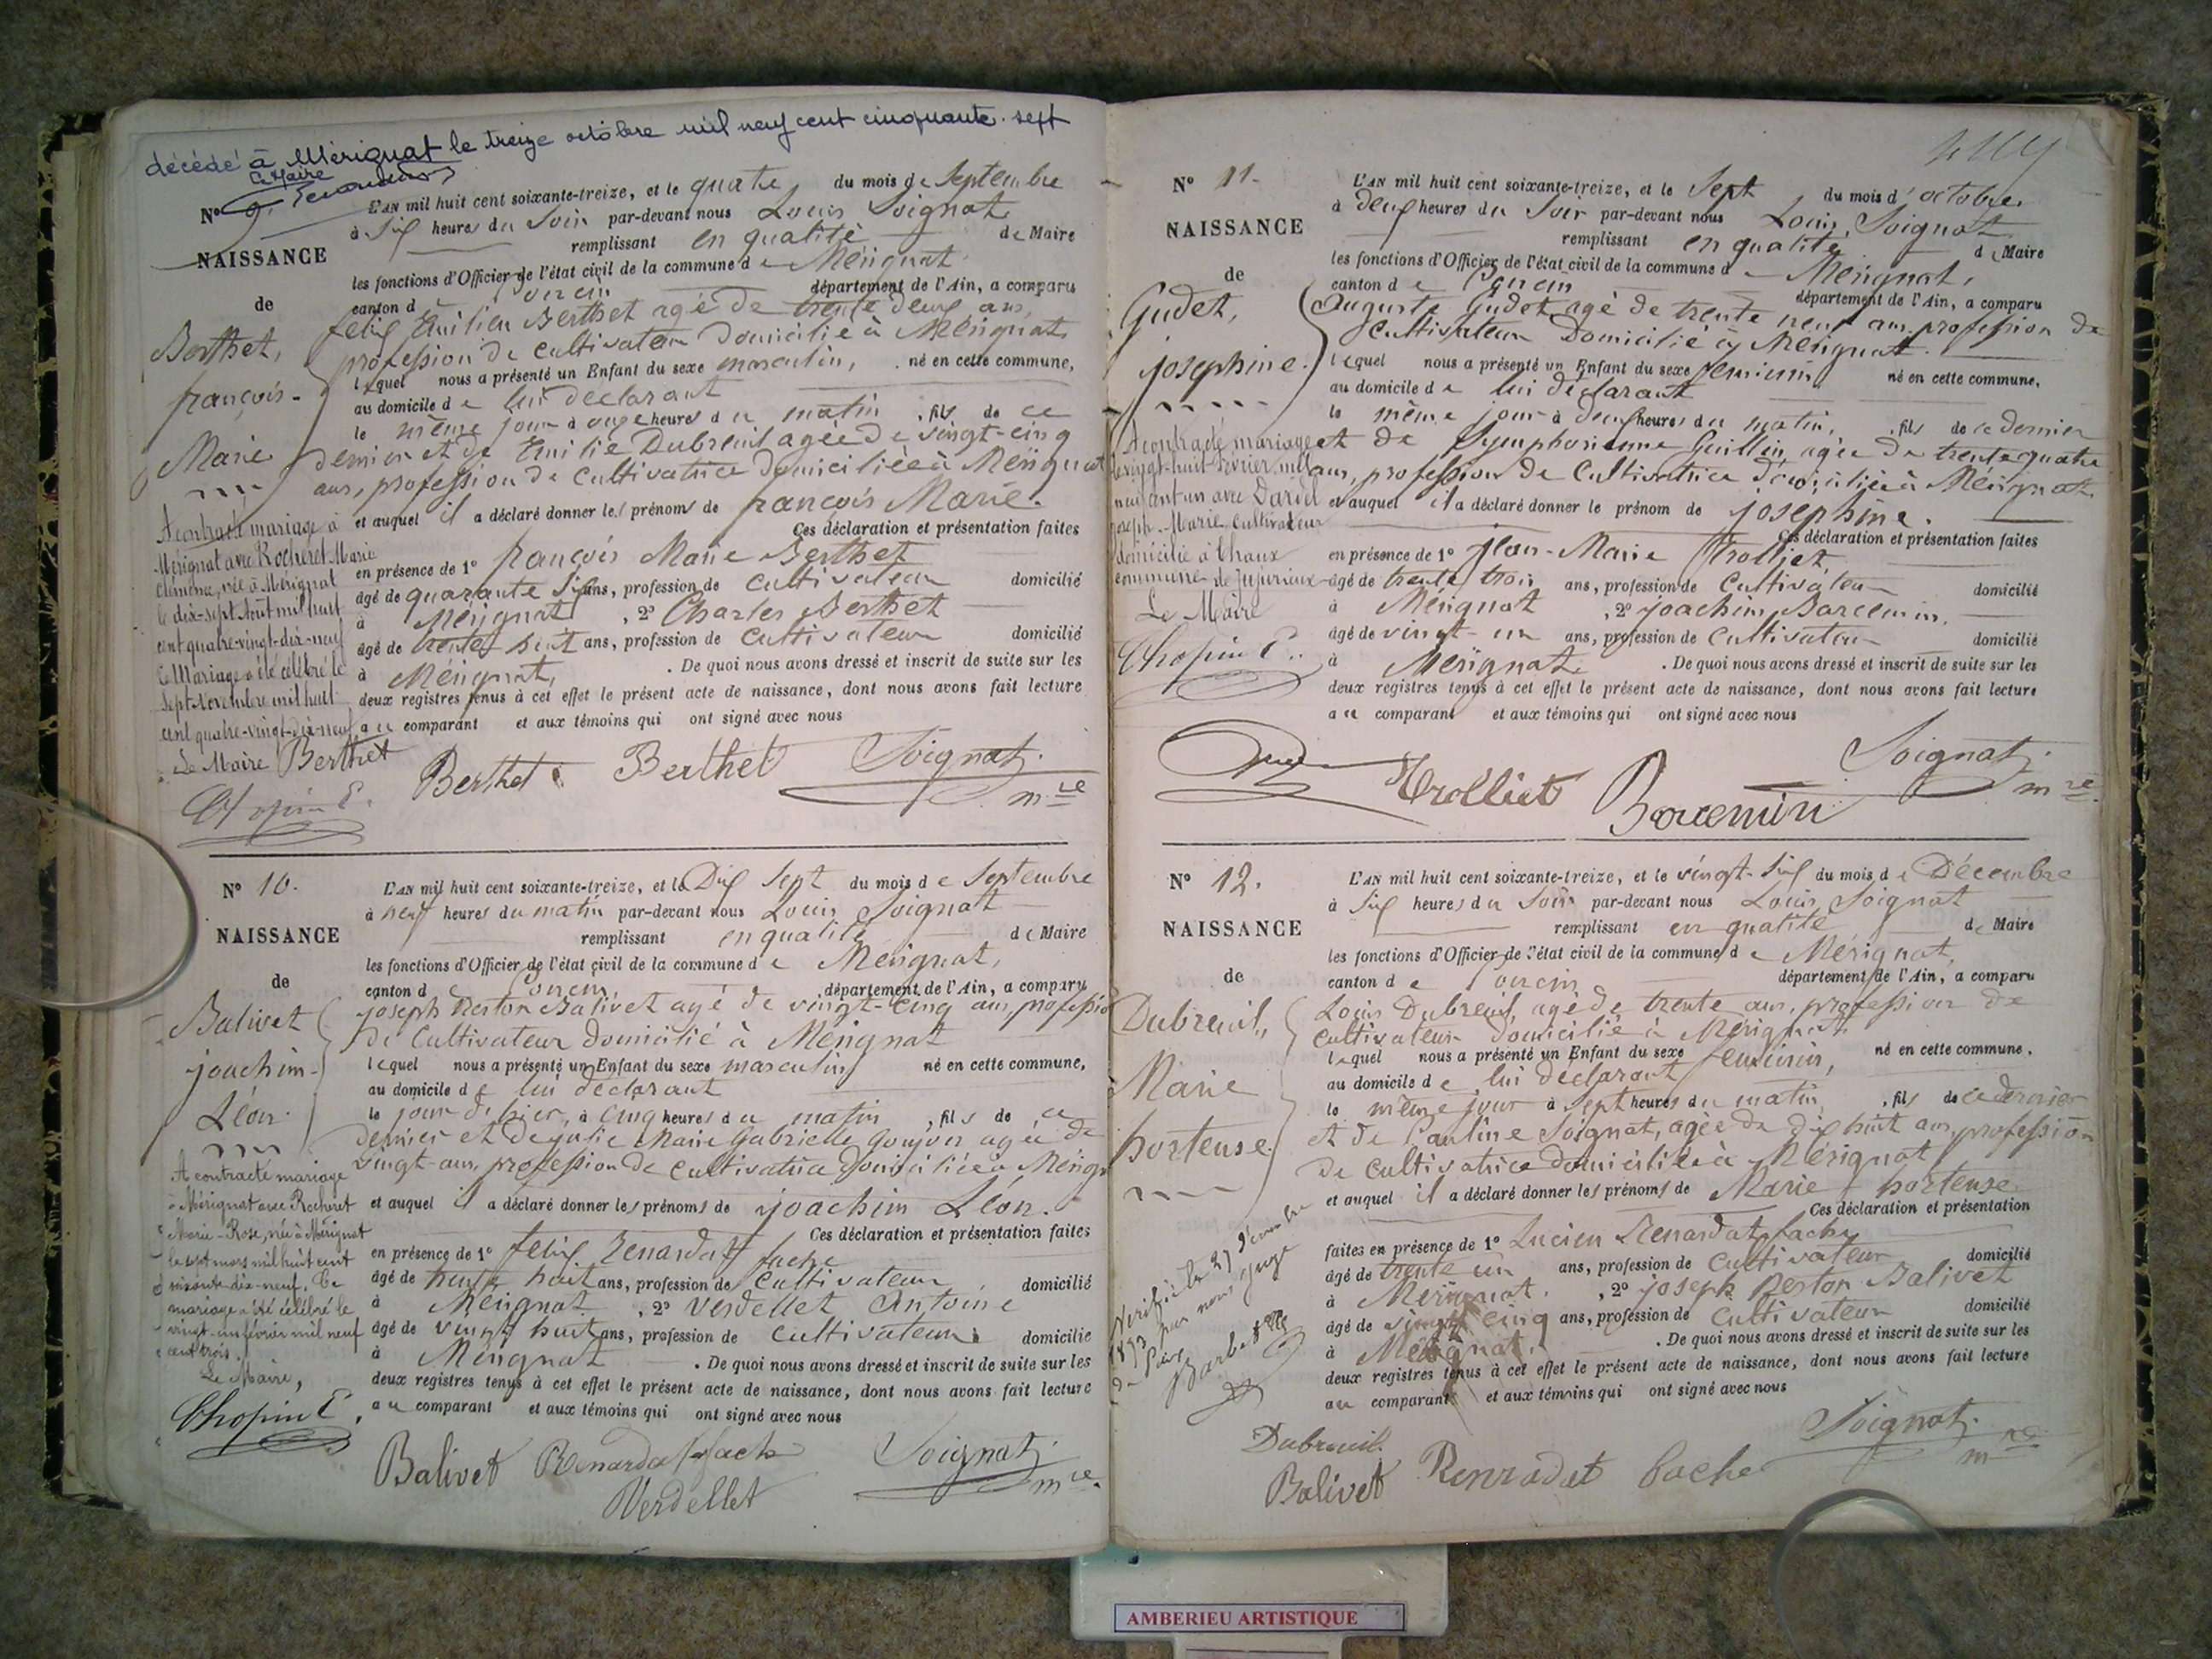 décédé à Mérignat le treize octobre mil neuf cent cinquante-sept
Le Maire
N° 9.
NAISSANCE
de
Berthet,
françois-
Marie
A contracté mariage à
Mérignat avec Rocheret Marie
Clémence, née à Mérignat
le dix-sept Aout mil huit
cent quatre-vingt-dix-neuf
Le Mariage a été célébré le
sept Novembre mil huit
cent quatre-vingt-dix-neuf
Le Maire
Chopin E.
L'AN mil huit cent soixante-treize, et le quatre du mois de Septembre
à Six heures du Soir par-devant nous Louis Soignat
remplissant en qualité de Maire
les fonctions d'Officier de l'état civil de la commune de Mérignat
canton de Poncin département de l'Ain, a comparu
felix Emilien Berthet agé de trente deux ans,
profession de cultivateur domicilié à Mérignat
lequel nous a présenté un Enfant du sexe masculin, né en cette commune,
au domicile de lui déclarant
le même jour à onze heures du matin, fils de ce
dernier et de Emilie Dubreuil agée de vingt-cinq
ans, profession de cultivatrice domiciliée à Mérignat
et auquel il a déclaré donner les prénoms de françois Marie.
Ces déclaration et présentation faites
en présence de 1° françois Marie Berthet
âgé de quarante Six ans, profession de cultivateur domicilié
à Mérignat, 2° Charles Berthet
âgé de trente huit ans, profession de cultivateur domicilié
à Mérignat. De quoi nous avons dressé et inscrit de suite sur les
deux registres tenus à cet effet le présent acte de naissance, dont nous avons fait lecture
au comparant et aux témoins qui ont signé avec nous
Berthet Berthet Berthet Soignat
mre
N° 10.
NAISSANCE
de
Balivet
joachim-
Léon.
A contracté mariage
à Mérignat avec Rocheret
Marie-Rose, née à Mérignat
le sept mars mil huit cent
soixante-dix-neuf. Ce
mariage a été célébré le
vingt-un février mil neuf
cent trois.
Le Maire,
Chopin E.
L'AN mil huit cent soixante-treize, et le Dix Sept du mois de Septembre
à neuf heures du matin par-devant nous Louis Soignat
remplissant en qualité de Maire
les fonctions d'Officier de l'état civil de la commune de Mérignat,
canton de Poncin département de l'Ain, a comparu
joseph Nestor Balivet agé de vingt-cinq ans, professio
de Cultivateur domicilié à Mérignat
lequel nous a présenté un Enfant du sexe masculin né en cette commune,
au domicile de lui déclarant
le jour d'hier, à cinq heures du matin, fils de ce
dernier et de julie Marie Gabrielle Goujon agée de
vingt-ans, profession de cultivatrice domiciliée à Mérign
et auquel il a déclaré donner les prénoms de joachim Léon.
Ces déclaration et présentation faites
en présence de 1° felix Renardat fache
âgé de trente huit ans, profession de Cultivateur domicilié
à Mérignat, 2° Verdellet Antoine
âgé de vingt huit ans, profession de cultivateur domicilié
à Mérignat. De quoi nous avons dressé et inscrit de suite sur les
deux registres tenus à cet effet le présent acte de naissance, dont nous avons fait lecture
au comparant et aux témoins qui ont signé avec nous
Balivet Renardat fache Soignat
Verdellet mre.
N° 11.
NAISSANCE
de
Gudet,
josephine.
A contracté mariage
le vingt-huit Février mil
neuf cent un avec Darid
Joseph-Marie cultivateur
domicilié à Chaux
commune de Jujurieux
Le Maire
Chopin E.
L'AN mil huit cent soixante-treize, et le Sept du mois d'octobre
à deux heures du Soir par-devant nous Louis Soignat
remplissant en qualité de Maire
les fonctions d'Officier de l'état civil de la commune de Mérignat,
canton de Poncin département de l'Ain, a comparu
Auguste Gudet agé de trente neuf ans profession de
Cultivateur Domicilié à Mérignat.
lequel nous a présenté un Enfant du sexe feminin né en cette commune,
au domicile de lui déclarant
le même jour à deux heures du matin, fils de ce dernier
et de Symphorienne Guillin agée de trente quatre
ans, profession de Cultivatrice domiciliée à Mérignat
et auquel il a déclaré donner le prénom de josephine.
Ces déclaration et présentation faites
en présence de 1° jean-Marie Trolliet
âgé de trente trois ans, profession de Cultivateur domicilié
à Mérignat, 2° joachim Barcemin,
âgé de vingt-un ans, profession de Cultivateur domicilié
à Mérignat. De quoi nous avons dressé et inscrit de suite sur les
deux registres tenus à cet effet le présent acte de naissance, dont nous avons fait lecture
au comparant et aux témoins qui ont signé avec nous
Trolliet Barcemin Soignat
mre
N° 12.
NAISSANCE
de
Dubreuil,
Marie
hortense.
Vérifié le 27 Décembre
1873 par nous juge
de Paix
L'AN mil huit cent soixante-treize, et le vingt-Six du mois de Décembre
à Six heures du Soir par-devant nous Louis Soignat
remplissant en qualité de Maire
les fonctions d'Officier de l'état civil de la commune de Mérignat,
canton de Poncin département de l'Ain, a comparu
Louis Dubreuil, agé de trente ans, profession de
cultivateur domicilié à Mérignat
lequel nous a présenté un Enfant du sexe feminin, né en cette commune.
au domicile de lui déclarant
le même jour à Sept heures du matin, fils de ce dernier
et de Pauline Soignat, agée de dix huit ans, profession
de cultivatrice domiciliée à Mérignat
et auquel il a déclaré donner les prénoms de Marie hortense
Ces déclaration et présentation
faites en présence de 1° Lucien Renardat fache
âgé de trente un ans, profession de Cultivateur domicilié
à Mérignat, 2° joseph Nestor Balivet
âgé de vingt cinq ans, profession de cultivateur domicilié
à Mérignat. De quoi nous avons dressé et inscrit de suite sur les
deux registres tenus à cet effet le présent acte de naissance, dont nous avons fait lecture
au comparant et aux témoins qui ont signé avec nous
Dubreuil. Soignat
Balivet Renradat fache mre
AMBERIEU ARTISTIQUE